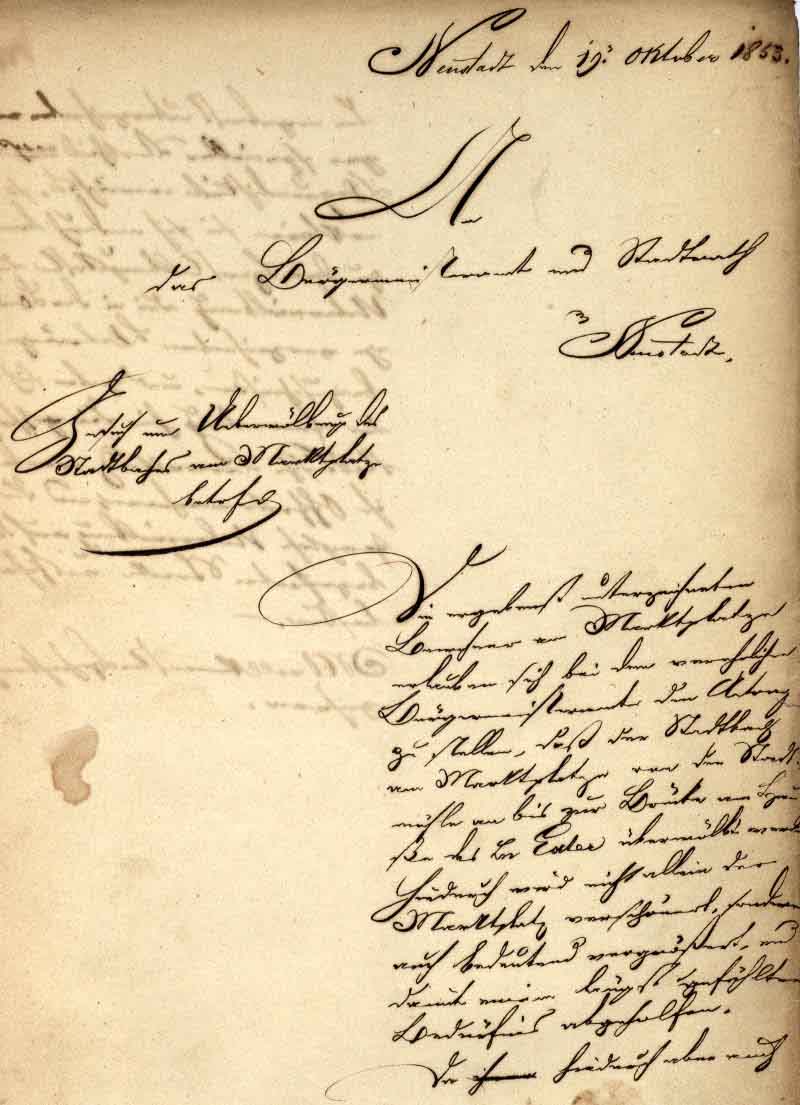 Neustadt den 19ᵗ Oktober 1853.
An
das Bürgermeisteramt und Stadtrath
Neustadt.
Gesuch um Ueberwölbung des
Stadtbaches am Marktplatze
betrfd
Die ergebenst unterzeichneten
Bewohner am Marktplatze
erlauben sich bei dem verehrlichen
Bürgermeisteramte den Antrag
zu stellen, daß der Stadtbach
am Marktplatze von der Stadt-
mühle an bis zur Brücke am Hau
ße des Exter überwölbt werde
Hiedurch wird nicht allein der
Marktplatz verschönert, sondern
auch bedeutend vergrößert, und
damit einem längst gefühlten
Bedürfnis abgeholfen.
Da hiedurch aber auch